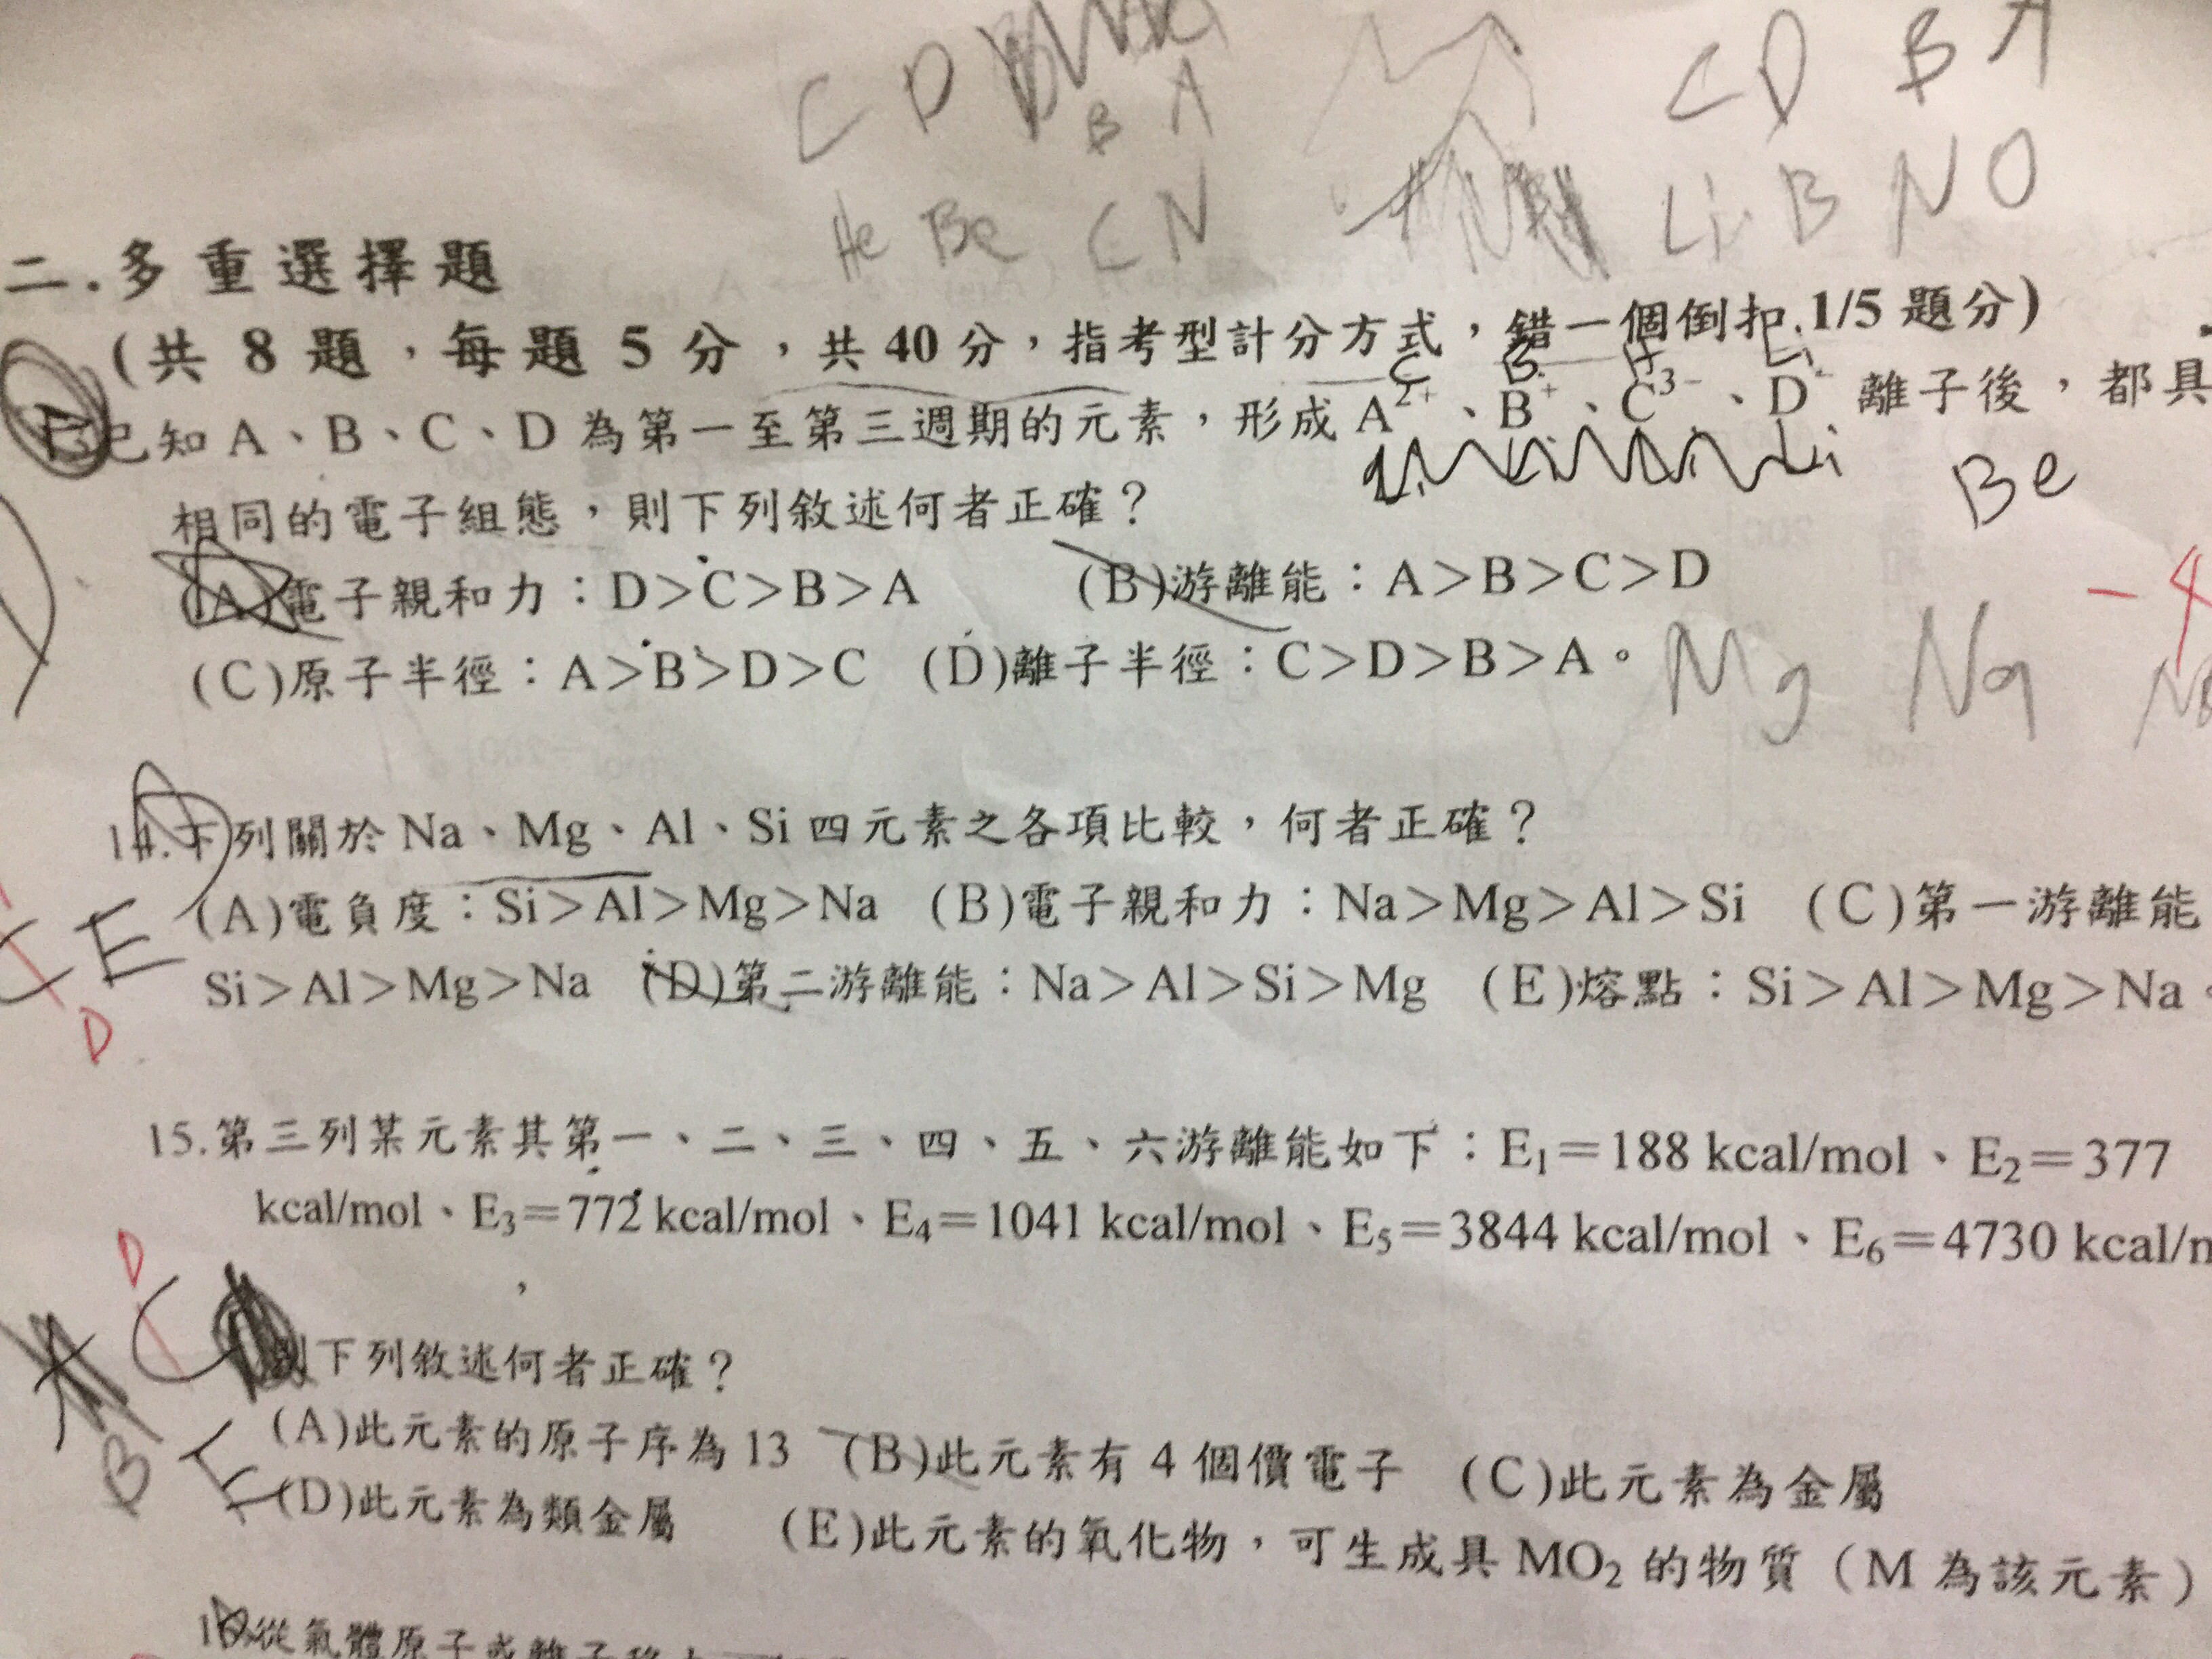 C D B A
C D B A
He Be C N
Li B N O
二.多重選擇題
(共 8 題，每題 5 分，共 40 分，指考型計分方式，錯一個倒扣 1/5 題分)
C B H Li
已知 A、B、C、D 為第一至第三週期的元素，形成 A²⁺、B⁺、C³⁻、D⁻ 離子後，都具
Li
Be
相同的電子組態，則下列敘述何者正確？
(A)電子親和力：D>C>B>A (B)游離能：A>B>C>D
-4
(C)原子半徑：A>B>D>C (D)離子半徑：C>D>B>A。
Mg Na
14.下列關於 Na、Mg、Al、Si 四元素之各項比較，何者正確？
(A)電負度：Si>Al>Mg>Na (B)電子親和力：Na>Mg>Al>Si (C)第一游離能
E
Si>Al>Mg>Na (D)第二游離能：Na>Al>Si>Mg (E)熔點：Si>Al>Mg>Na。
D
15.第三列某元素其第一、二、三、四、五、六游離能如下：E₁=188 kcal/mol、E₂=377
kcal/mol、E₃=772 kcal/mol、E₄=1041 kcal/mol、E₅=3844 kcal/mol、E₆=4730 kcal/m
D
，
C
則下列敘述何者正確？
(A)此元素的原子序為 13 (B)此元素有 4 個價電子 (C)此元素為金屬
B E
(D)此元素為類金屬 (E)此元素的氧化物，可生成具 MO₂ 的物質（M 為該元素）
從氣體原子或離子移